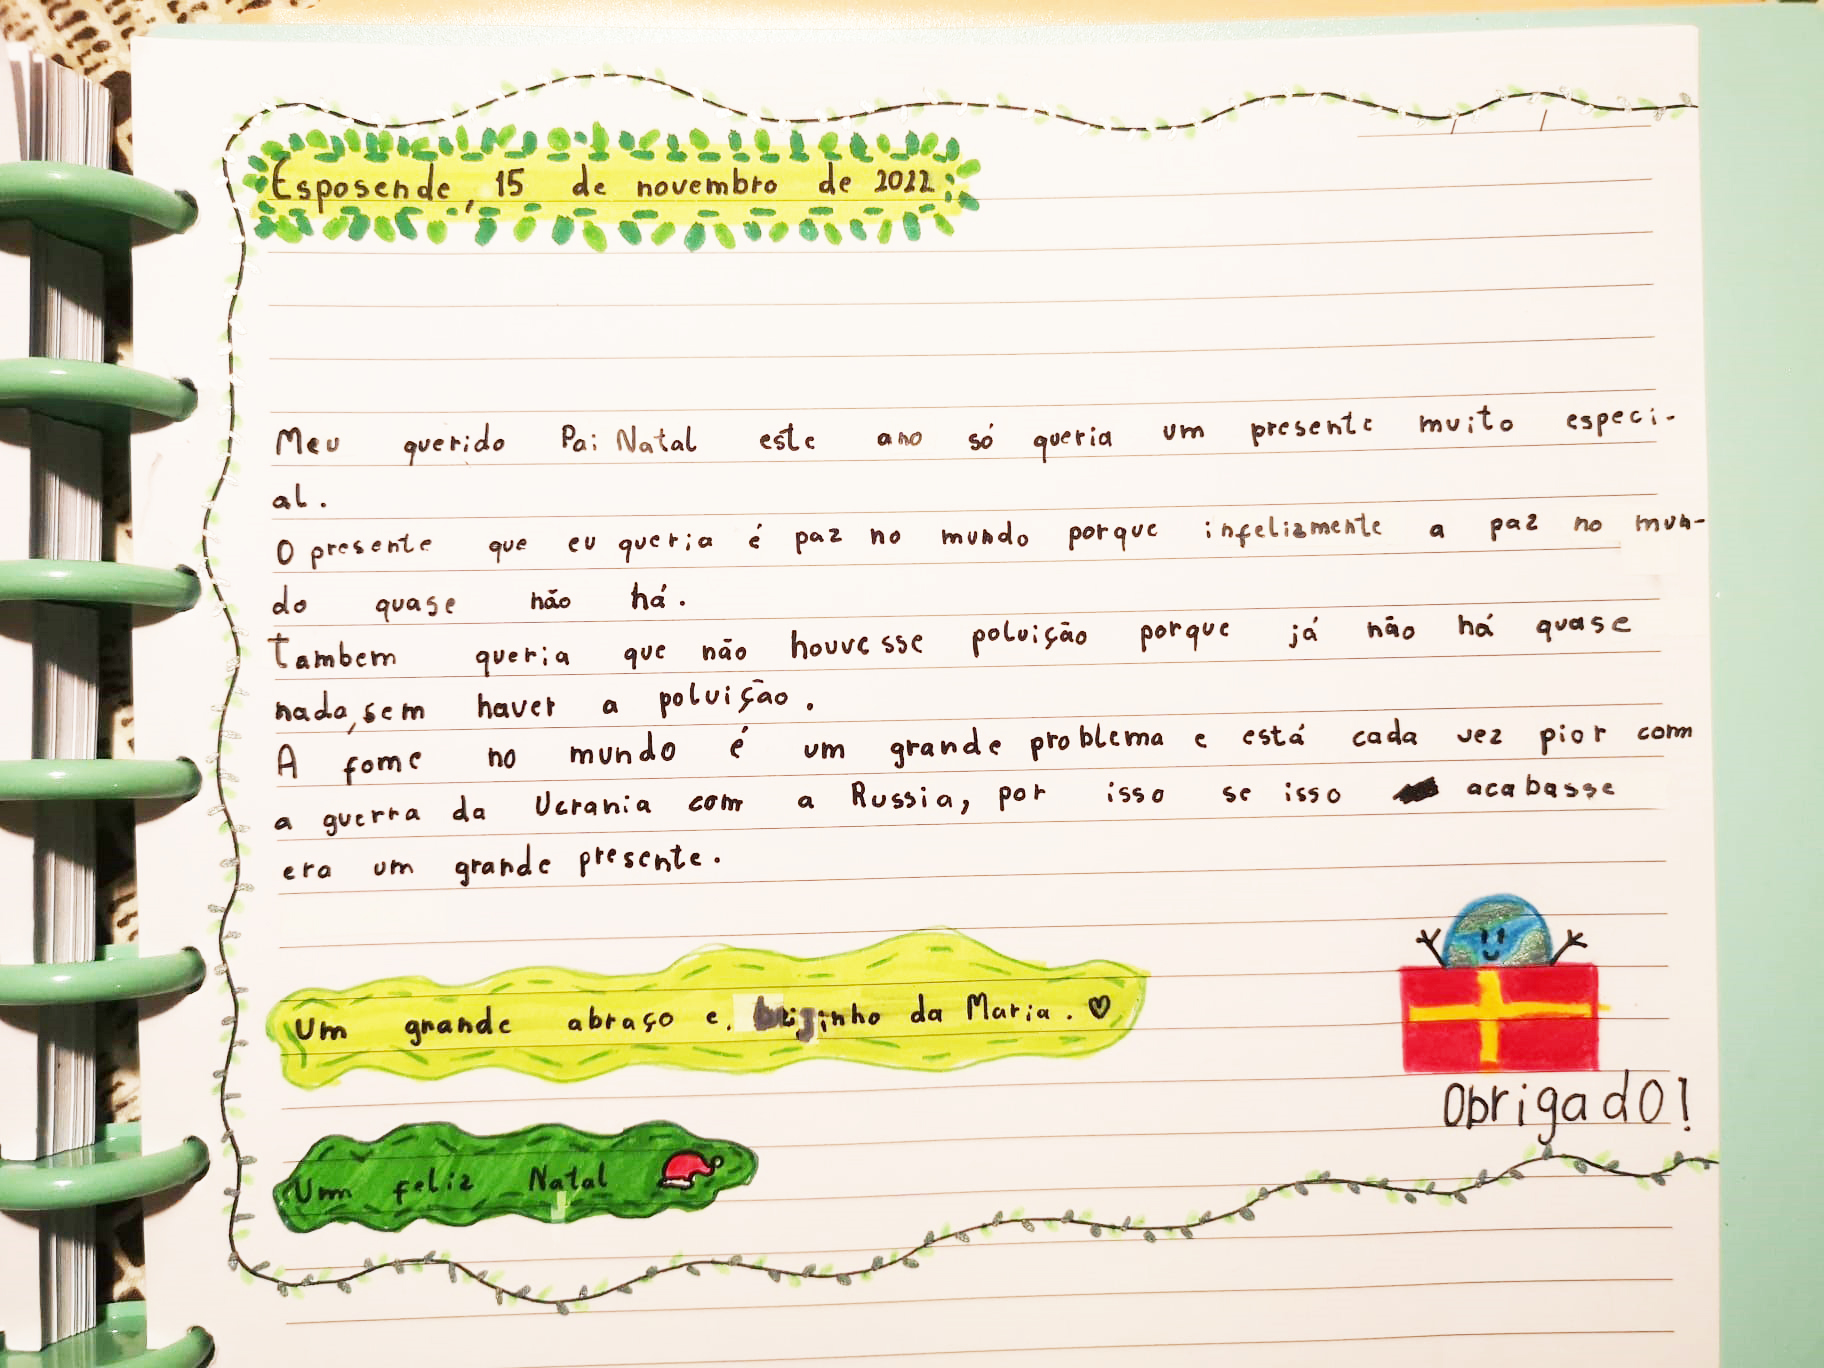 Esposende, 15 de novembro de 2022
Meu querido Pai Natal este ano só queria um presente muito especi-
al.
O presente que eu queria é paz no mundo porque infelizmente a paz no mun-
do quase não há.
Tambem queria que não houvesse poluição porque já não há quase
nada, sem haver a poluição.
A fome no mundo é um grande problema e está cada vez pior com
a guerra da Ucrania com a Russia, por isso se isso acabasse
era um grande presente.
Um grande abraço e beijinho da Maria. ♡
Obrigado!
Um feliz Natal